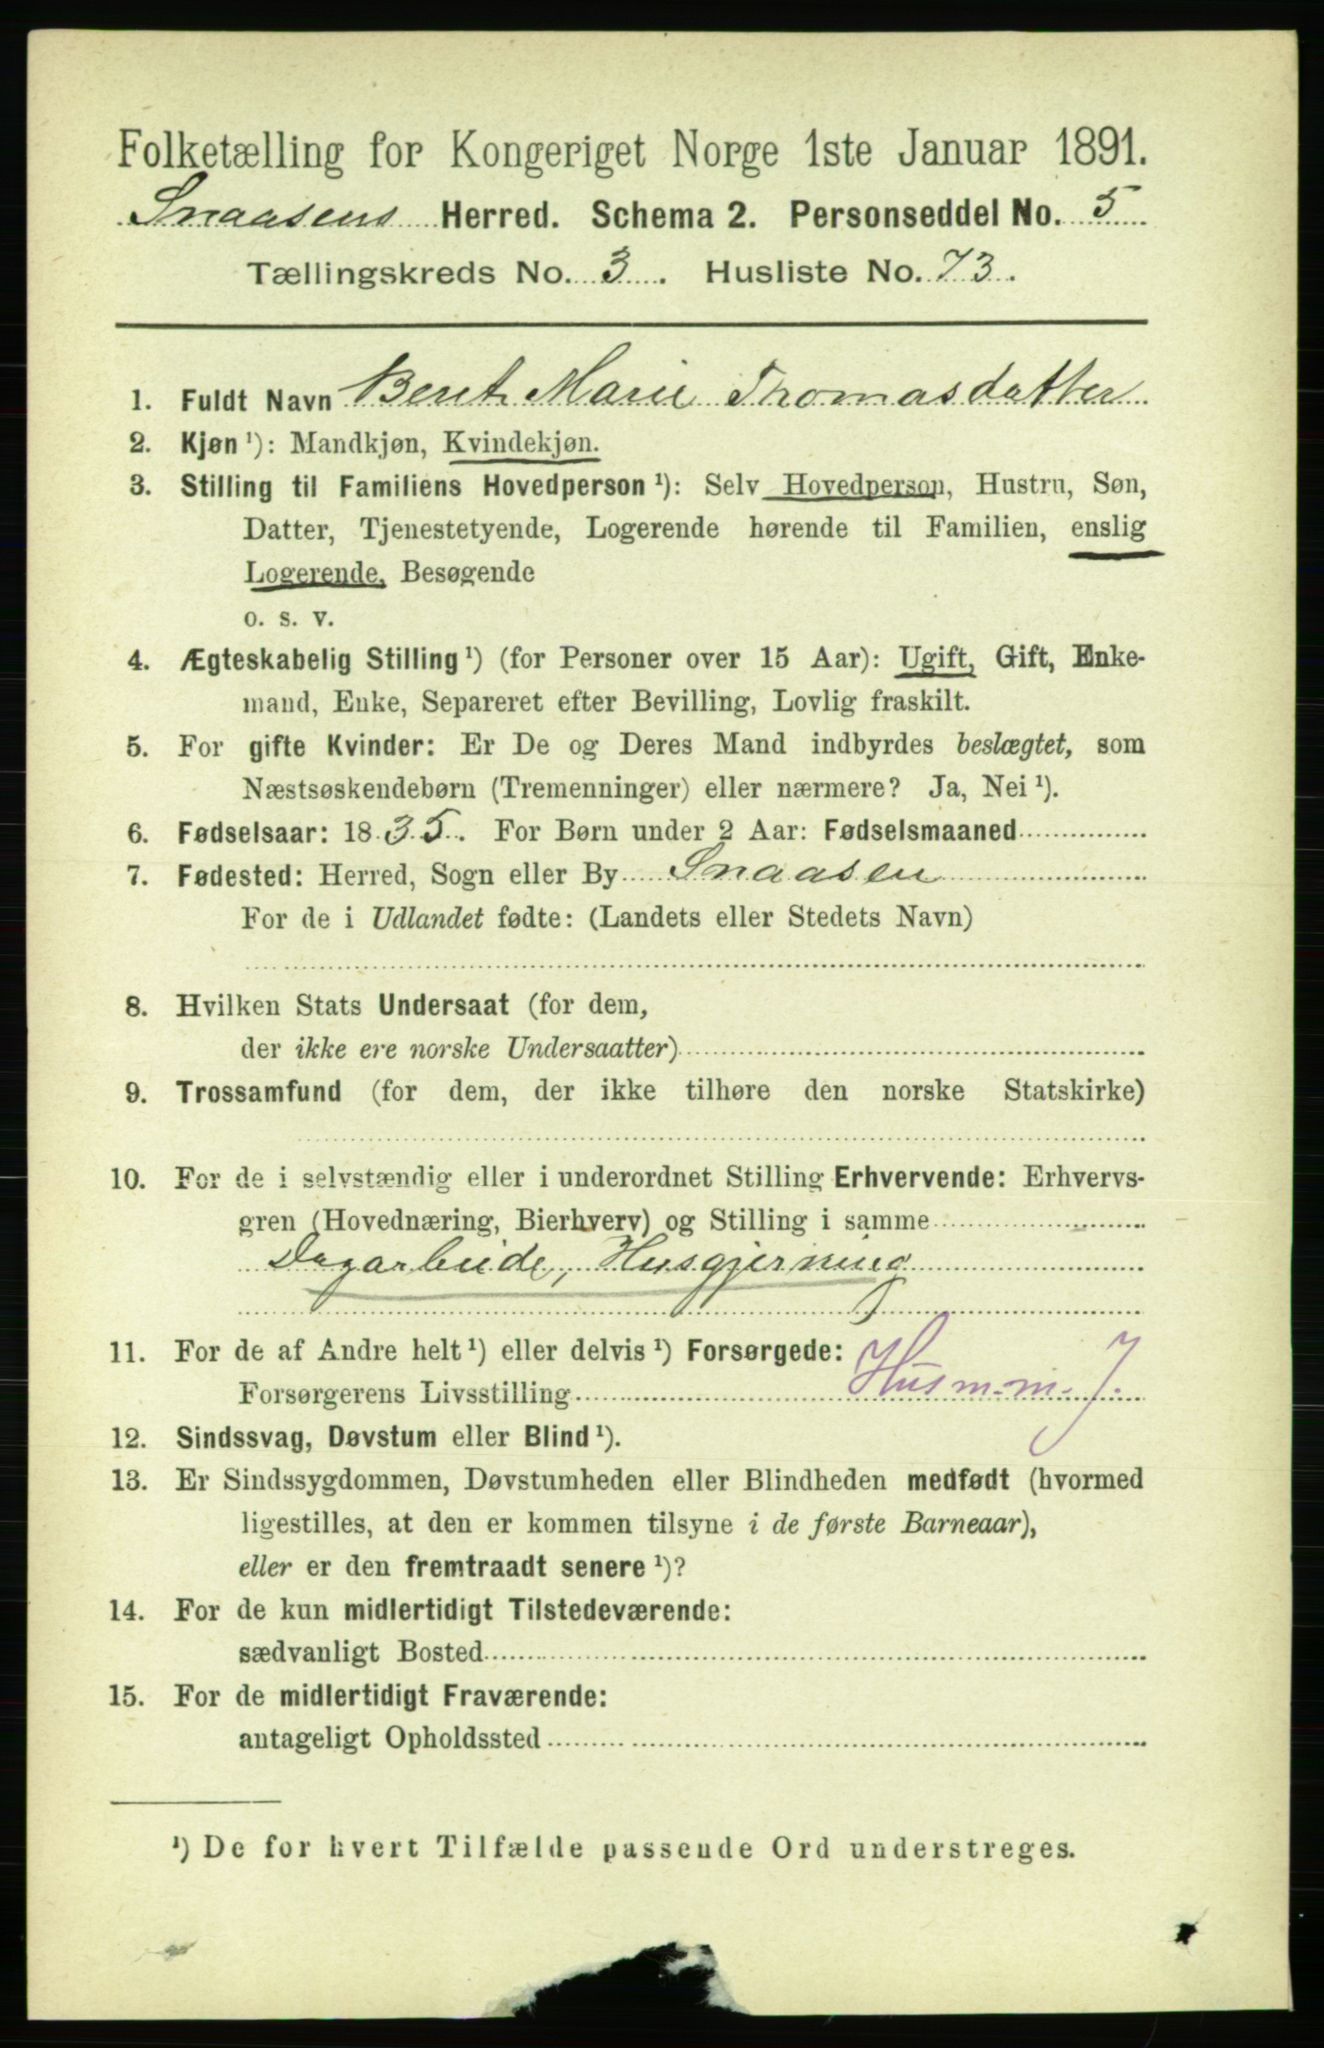 Folketælling for Kongeriget Norge 1ste Januar 1891.
Snaasens Herred. Schema 2. Personseddel No. 5
Tællingskreds No. 3. Husliste No. 73.
1. Fuldt Navn Berit Marie Thomasdatter
2. Kjøn ¹): Mandkjøn, Kvindekjøn.
3. Stilling til Familiens Hovedperson ¹): Selv Hovedperson, Hustru, Søn,
Datter, Tjenestetyende, Logerende hørende til Familien, enslig
Logerende, Besøgende
o. s. v.
4. Ægteskabelig Stilling ¹) (for Personer over 15 Aar): Ugift, Gift, Enke-
mand, Enke, Separeret efter Bevilling, Lovlig fraskilt.
5. For gifte Kvinder: Er De og Deres Mand indbyrdes beslægtet, som
Næstsøskendebørn (Tremenninger) eller nærmere? Ja, Nei ¹).
6. Fødselsaar: 1835. For Børn under 2 Aar: Fødselsmaaned
7. Fødested: Herred, Sogn eller By Snaasen
For de i Udlandet fødte: (Landets eller Stedets Navn)
8. Hvilken Stats Undersaat (for dem,
der ikke ere norske Undersaatter)
9. Trossamfund (for dem, der ikke tilhøre den norske Statskirke)
10. For de i selvstændig eller i underordnet Stilling Erhvervende: Erhvervs-
gren (Hovednæring, Bierhverv) og Stilling i samme
Dagarbeide, Husgjerning
11. For de af Andre helt ¹) eller delvis ¹) Forsørgede:
Forsørgerens Livsstilling Husm. m. J.
12. Sindssvag, Døvstum eller Blind ¹).
13. Er Sindssygdommen, Døvstumheden eller Blindheden medfødt (hvormed
ligestilles, at den er kommen tilsyne i de første Barneaar),
eller er den fremtraadt senere ¹)?
14. For de kun midlertidigt Tilstedeværende:
sædvanligt Bosted
15. For de midlertidigt Fraværende:
antageligt Opholdssted
¹) De for hvert Tilfælde passende Ord understreges.